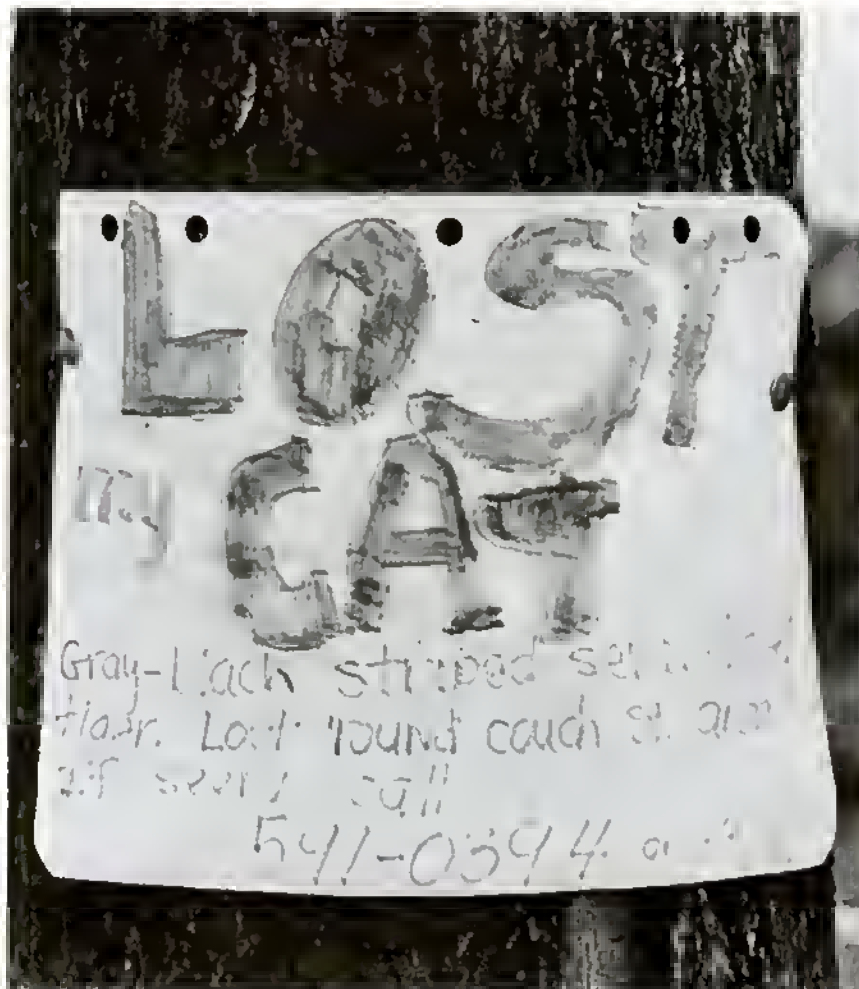 LOST
my CAT
Gray-black striped
Lost 'round couch St. area
if seen call
541-0394